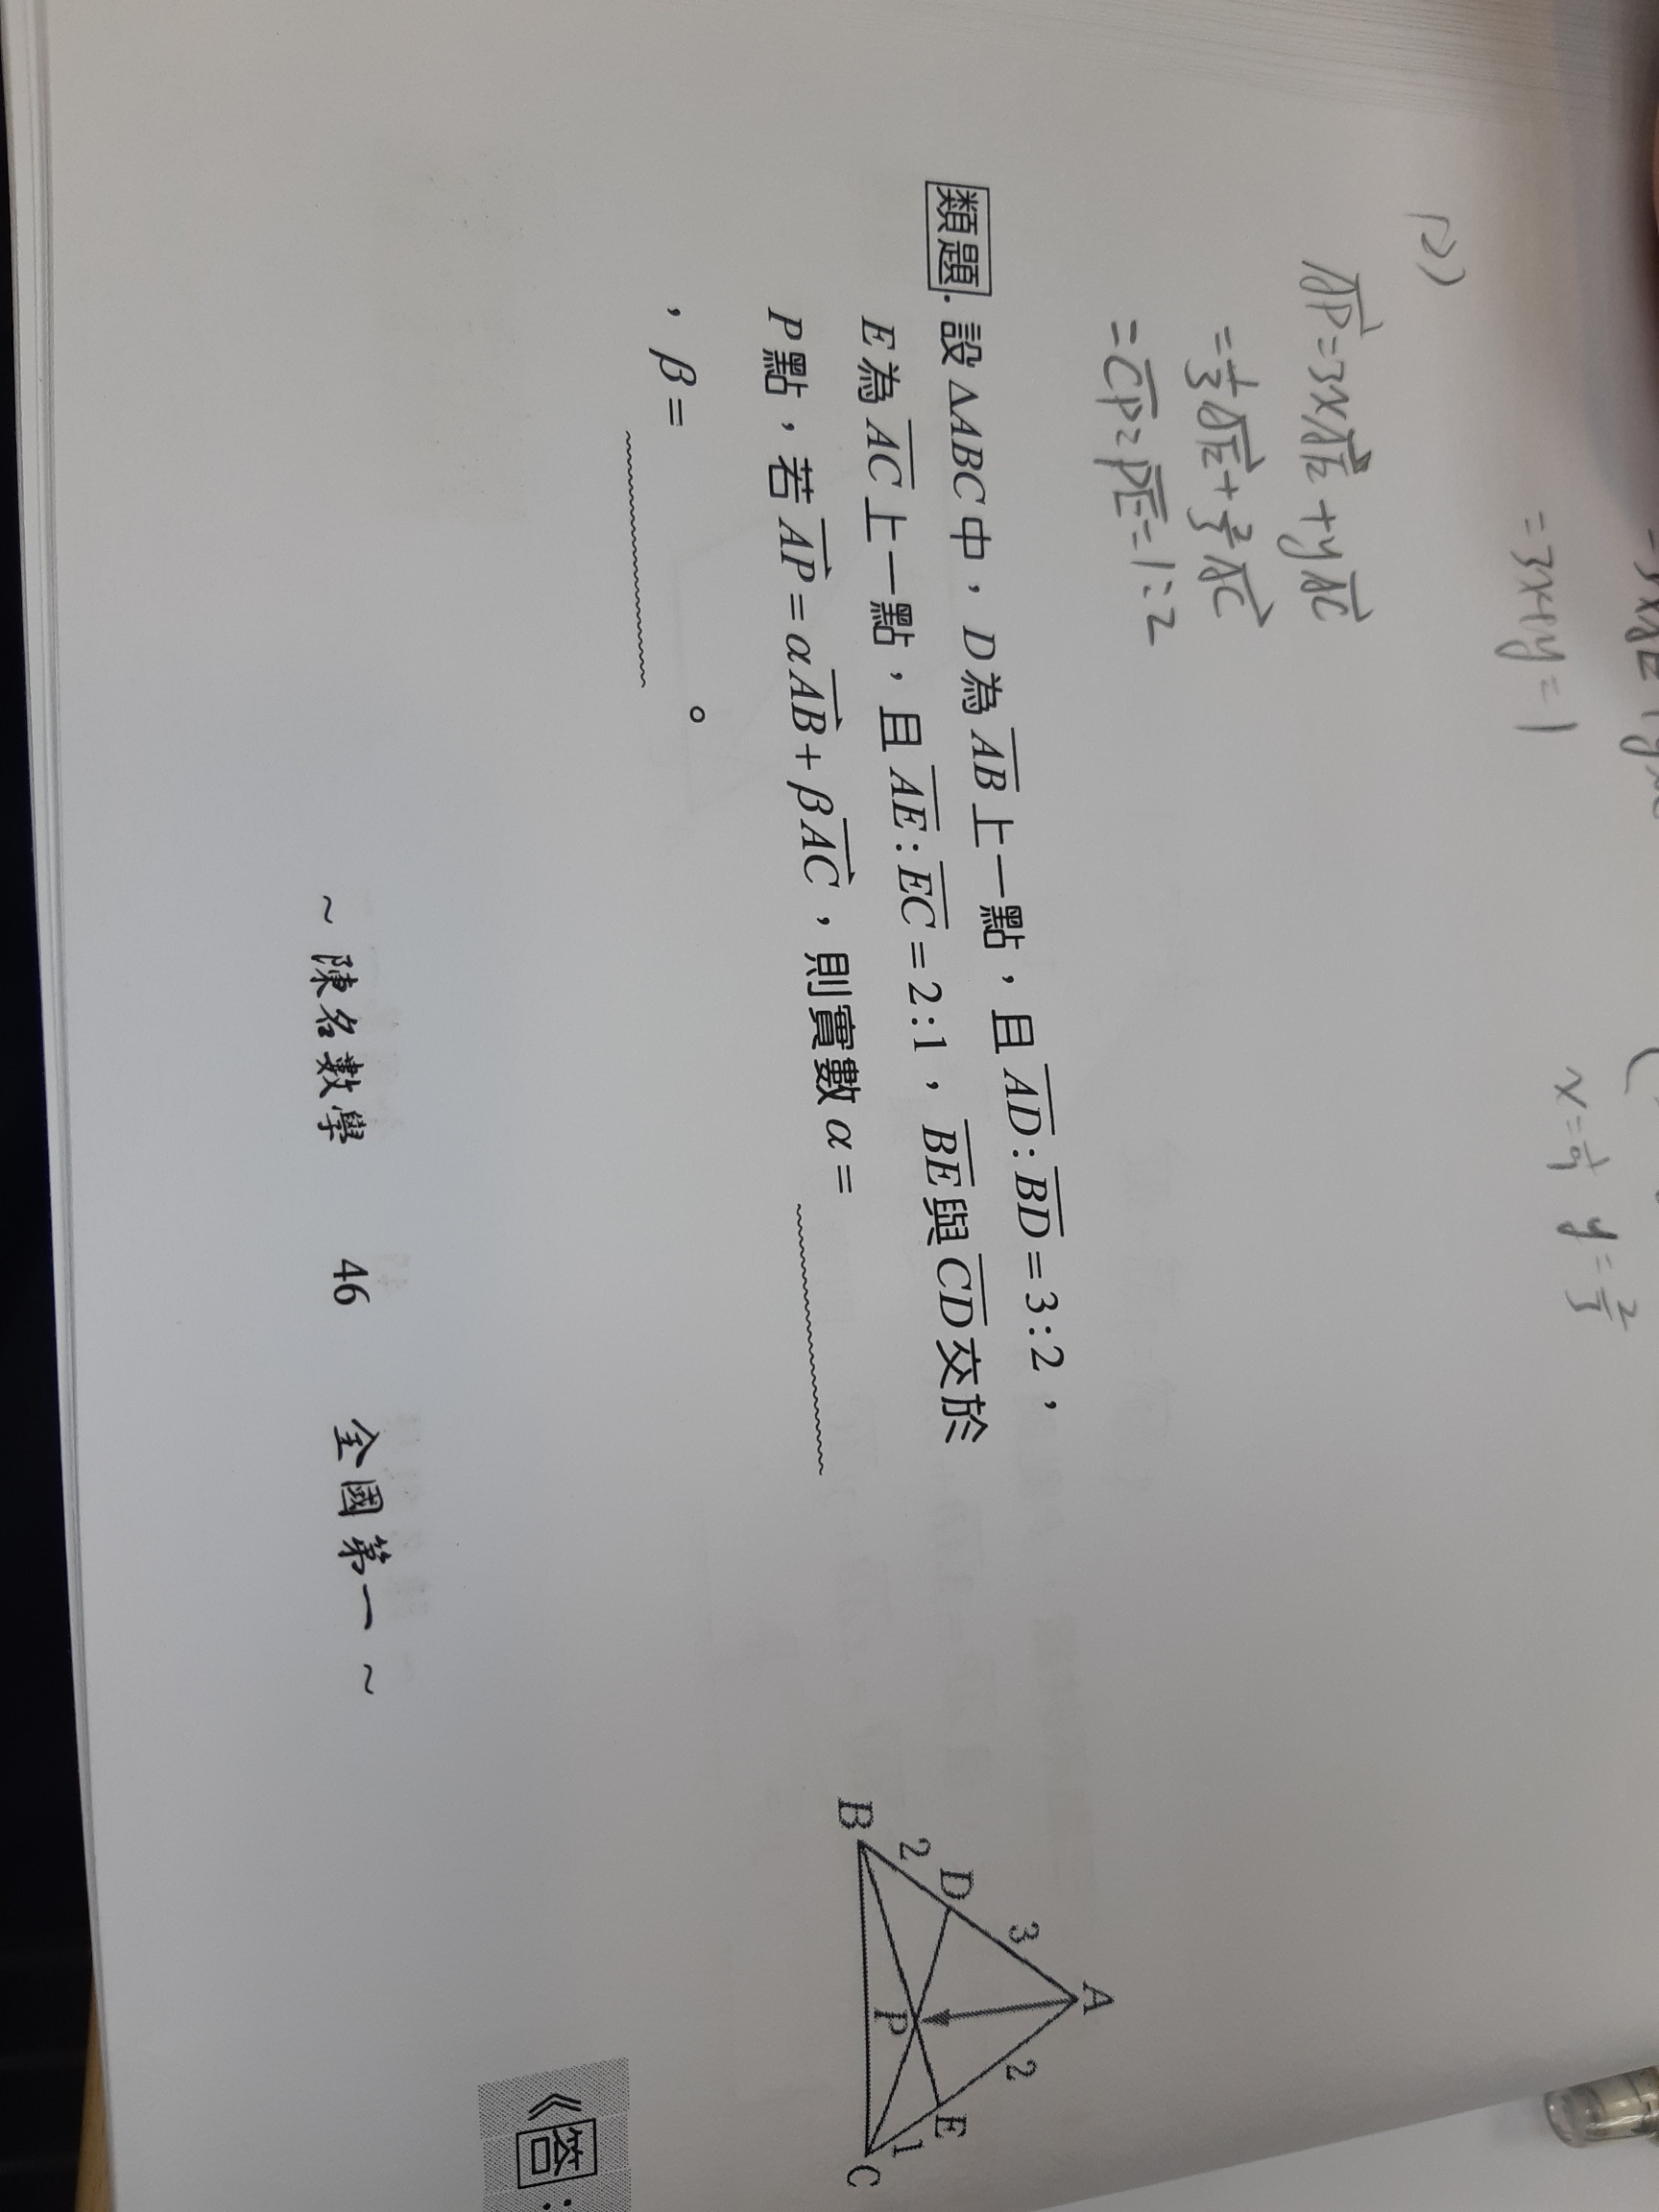 = 3x+y = 1
x = 1/9 y = 2/3
(2)
AP = 3xAE + yAC
= 1/3 AE + 2/3 AC
= CP = PE = 1:2
類題. 設 △ABC 中，D 為 AB 上一點，且 AD : BD = 3 : 2，
E 為 AC 上一點，且 AE : EC = 2 : 1，BE 與 CD 交於
P 點，若 AP = αAB + βAC，則實數 α =
，β = 。
A
3
2
D
E
2
1
P
B
C
《答：
~ 陳名數學 46 全國第一 ~